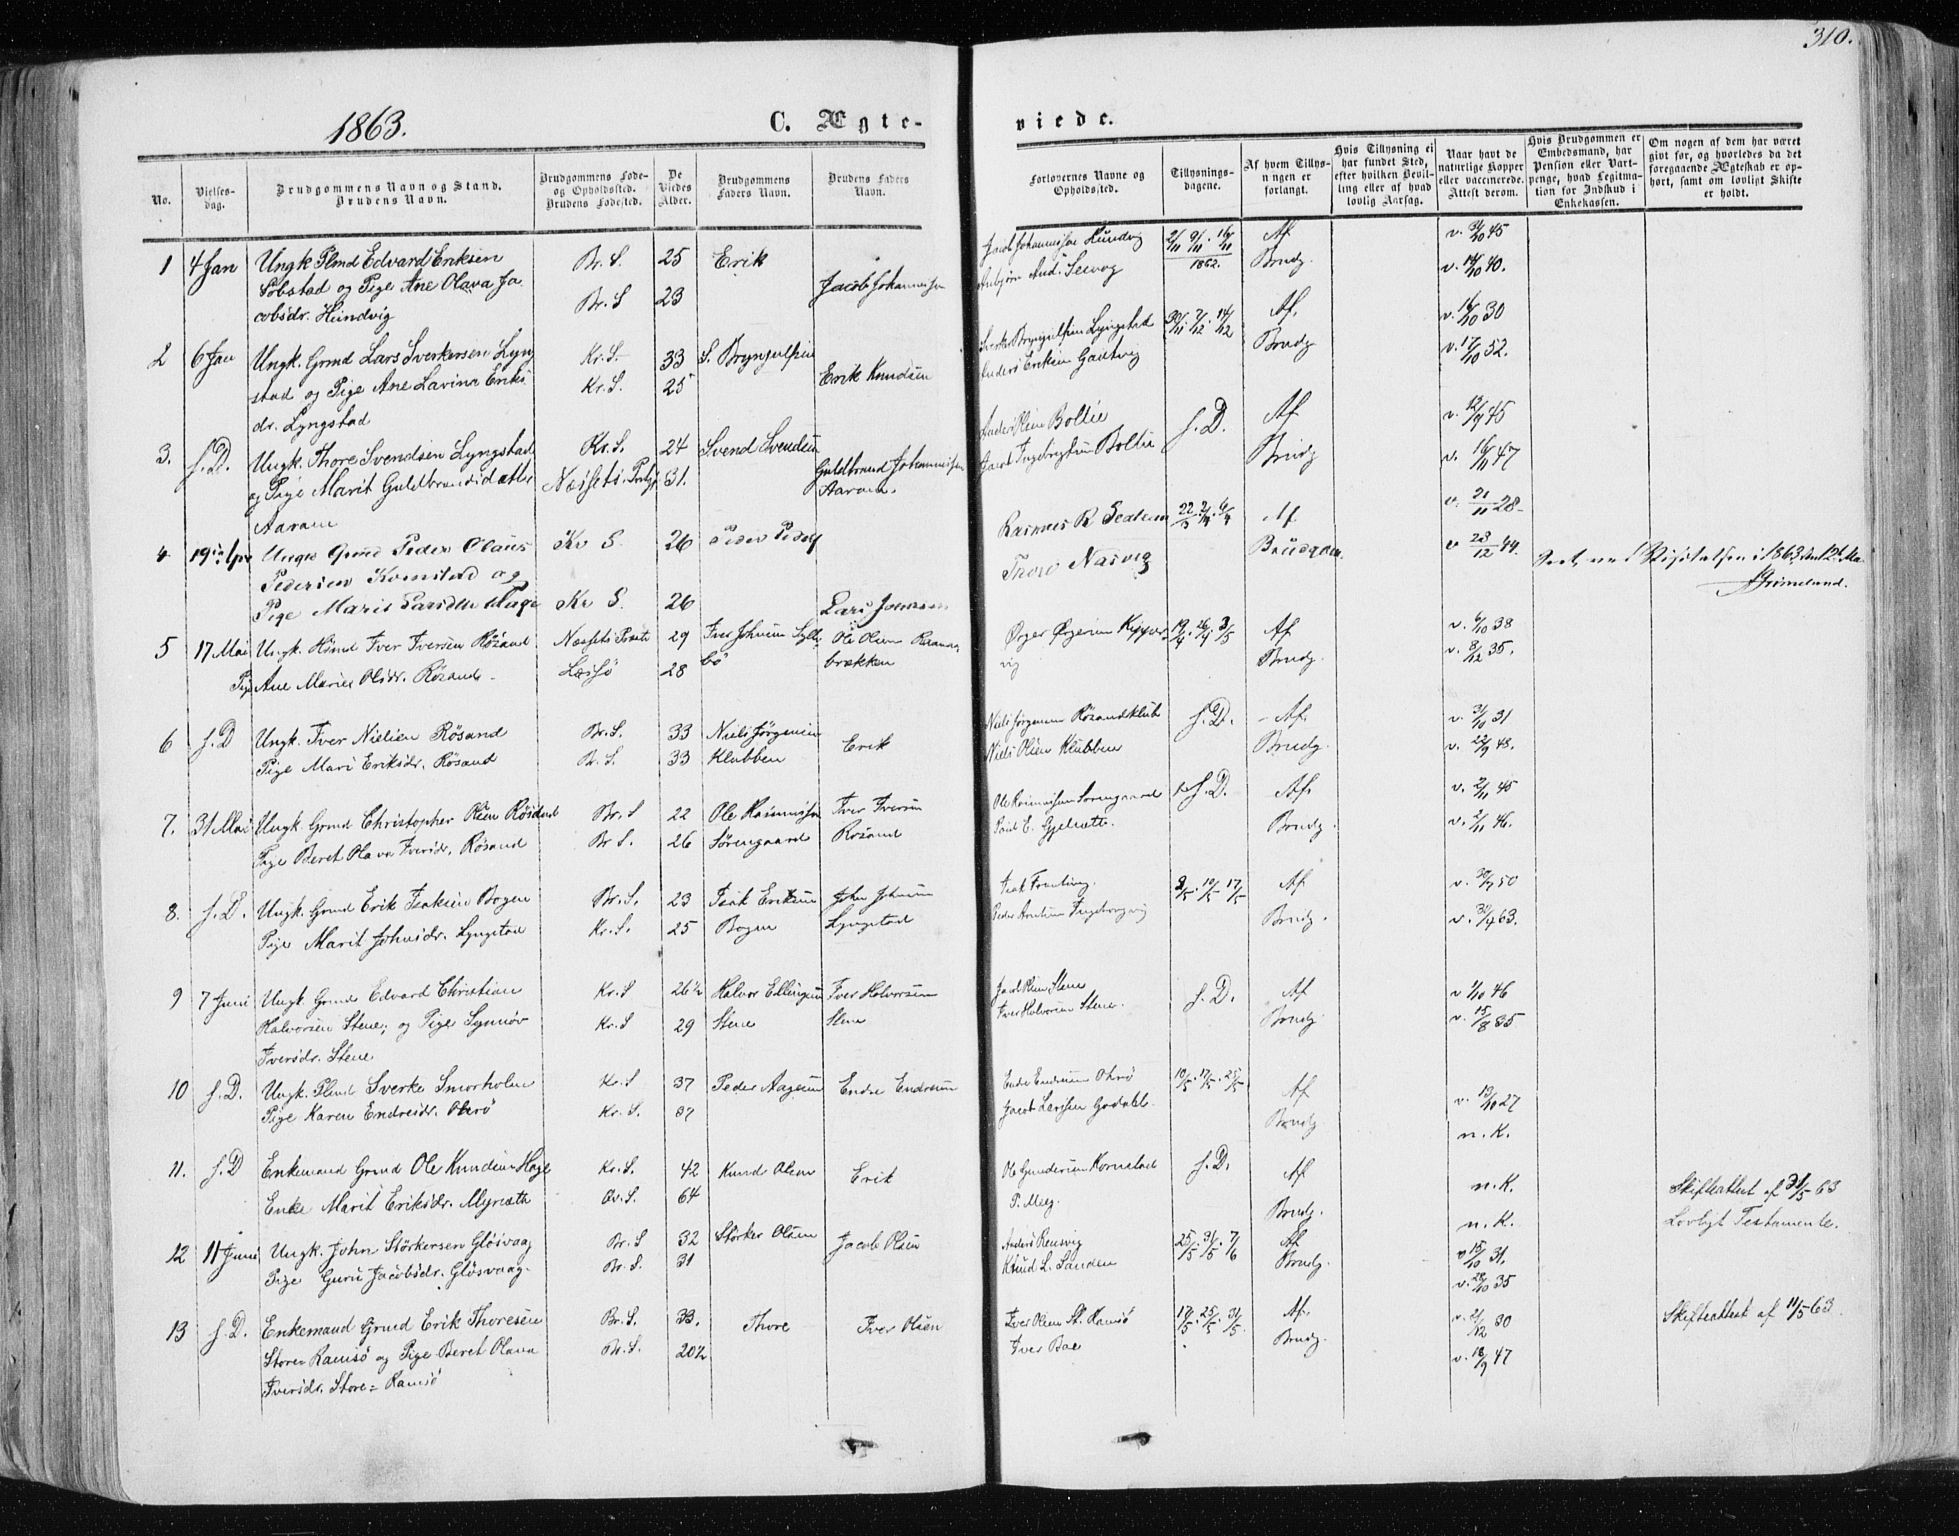 310.
1863.
C. Ægte-
viede.
No.
Vielses-
dag.
Brudgommens Navn og Stand.
Brudens Navn.
Brudgommens Føde-
og Opholdssted.
Brudens Fødested.
De
Viedes
Alder.
Brudgommens
Faders Navn.
Brudens Faders
Navn.
Forlovernes Navne og
Opholdssted.
Tillysnings-
dagene.
Af hvem Tillys-
ningen er
forlangt.
Hvis Tillysning ei
har fundet Sted,
efter hvilken Bevil-
ling eller af hvad
lovlig Aarsag.
Naar havt de
naturlige Kopper
eller vaccinerede.
Attest derom.
Hvis Brudgommen er
Embedsmand, har
Pension eller Vart-
penge, hvad Legitima-
tion for Indskud i
Enkekassen.
Om nogen af dem har været
gift før, og hvorledes da det
foregaaende Ægteskab er op-
hørt, samt om lovligt Skifte
er holdt.
1 4 Jan Ungk Plmd Edvard Eriksen Br. S. 25 Erik
Sobstad og Pige Ane Olava Ja
cobsdr. Hundvig Br. S 23 Jacob Johannissen
Jacob Johannissen Hundvig 2/11 9/11 16/11 1862. Af Brudg.
2 6 Jan Ungk. Grmd Lars Sverkersen Lyng
stad og Pige Ane Lavina Eriks
dr. Lyngstad Kr. S. 33 S. Brynjulfsen
Kr. S. 25 Erik Knudsen
Sverke Brynjulfsen Lyngstad 30/11. 7/12. 14/12 Af. Brudg v. 16/10 30
Anders Eriksen Gautvig v. 17/10 52.
3. s. D. Ungk. Thore Svendsen Lyngstad Kr. S. 24 Svend Svendsen
og Pige Marit Guldbrandsdatter Næssets Prstgj 31. Guldbrand Johannissen
Aaram Aaram.
Boltie s. D. Af Brudg v. 12/9 45
Jacob Ingebrigtsen Boltie v. 16/11 47
4 19de Apr Ungk Grmd Peder Olaus Kr S. 26 Peder Peders
Pedersen Kornstad og
Pige Marie Larsdtr Hage Kr S. 26 Lars Jonassen
Rasmus R 22/3 2/4 6/4 Af v 21/11 28
Thore Nasvig Brudgom. v 23/12 44.
5 17 Mai Ungk. Hsmd Iver Iversen Røsand Næssets Prstg 29 Iver Johnsen Sylte
bø Ole Olsen
Pige Ane Marie Olsdr. Røsand Læsjø 28 brækken
Ørger Ørgersen 19/4 26/4 3/5 Af Brudg. v. 6/10 38
vig v. 8/12 35.
6 s. D Ungk. Iver Nielsen Røsand Br. S. 33 Niels Jørgensen Erik
Pige Mari Eriksdr. Røsand Br. S. 33 Klubben
Niels Jørgensen Røsandklub s. D. Af. v. 31/10 31
Niels Olsen Klubben Brudg. v. 22/9 48.
7. 31 Mai Ungk. Grmd Christopher Olsen Røsand Br. S 22 Ole Rasmussen Iver Iversen
Pige Beret Olava Iversdr. Røsand Br S. 26 Sørengaard Røsand
Ole Rasmussen Sørengaard s. D. Af. v. 2/11 45
Brudg. v. 2/11 46.
8. s. D. Ungk. Grmd Erik Isaksen Bogen Br. S. 23 Isak Eriksen John Johnsen
Pige Marit Johnsdr. Lyngstad Kr. S. 25 Bogen Lyngstad
3/5. 10/5. 17/5 Af v. 30/7 50
Brudg. v. 30/4 63.
9 7 Juni Ungk. Grmd Edvard Christian Kr. S 26 1/2 Halvor Ellingsen Iver Halvorsen
Halvorsen Stene, og Pige Synnøv Kr. S 29 Stene Stene
Iversdr. Stene
Jacob Olsen Stene s. D. Af v 1/10 46
Iver Halvorsen Stene. Brudg. v. 15/8 35
10 s. D. Ungk. Plmd Sverke Smorholm Kr. S 37 Peder Aagesen Endre Endresen
Pige Karen Endresdr. Otrø Kr. S. 37
Endre Endresen Otrø 10/5. 17/5. 25/5 Af v. 13/10 27
Jacob Larssen Godahl. Brudg n. K.
11. s. D Enkemand Grmd Ole Knudsen Hage Kr. S. 42 Knud Olsen Erik
Enke Marit Eriksdr. Myrsæth Qv. S. 64
Ole Gundersen Kornstad s. D. Af n. K. Skifteattest af 31/5 63
P. Moeg Brudg. n. K. Lovligt Testamente.
12 11 Juni Ungk. John Størkersen Gløsvaag Br. S 32 Størker Olsen Jacob Olsen
Pige Guru Jacobsdr. Gløsvaag. Br. S. 31
Anders Rensvig 25/5. 31/5. 7/6 Af v 15/10 31.
Knud L. Sanden Brudg. v. 28/10 35
13 s. D. Enkemand Grmd Erik Thoresen Br. S. 33. Thore Iver Olsen
Store Ramsø og Pige Beret Olava Br. S. 20 1/2
Iversdr. Store-Ramsø
Iver Olsen St. Ramsø 17/5. 25/5. 31/5. Af. v. 21/12 30 Skifteattest af 11/5 63.
Iver Boe Brudg. v. 18/9 47